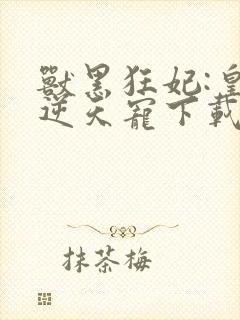 獸黑狂妃:皇
逆天寵下載
抹茶梅